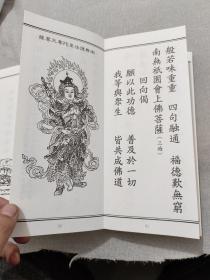 般若味重重　四句融通　福德歎無窮
南無祇園會上佛菩薩（三稱）
回向偈
願以此功德　普及於一切
我等與眾生　皆共成佛道
南無護法韋馱尊天菩薩